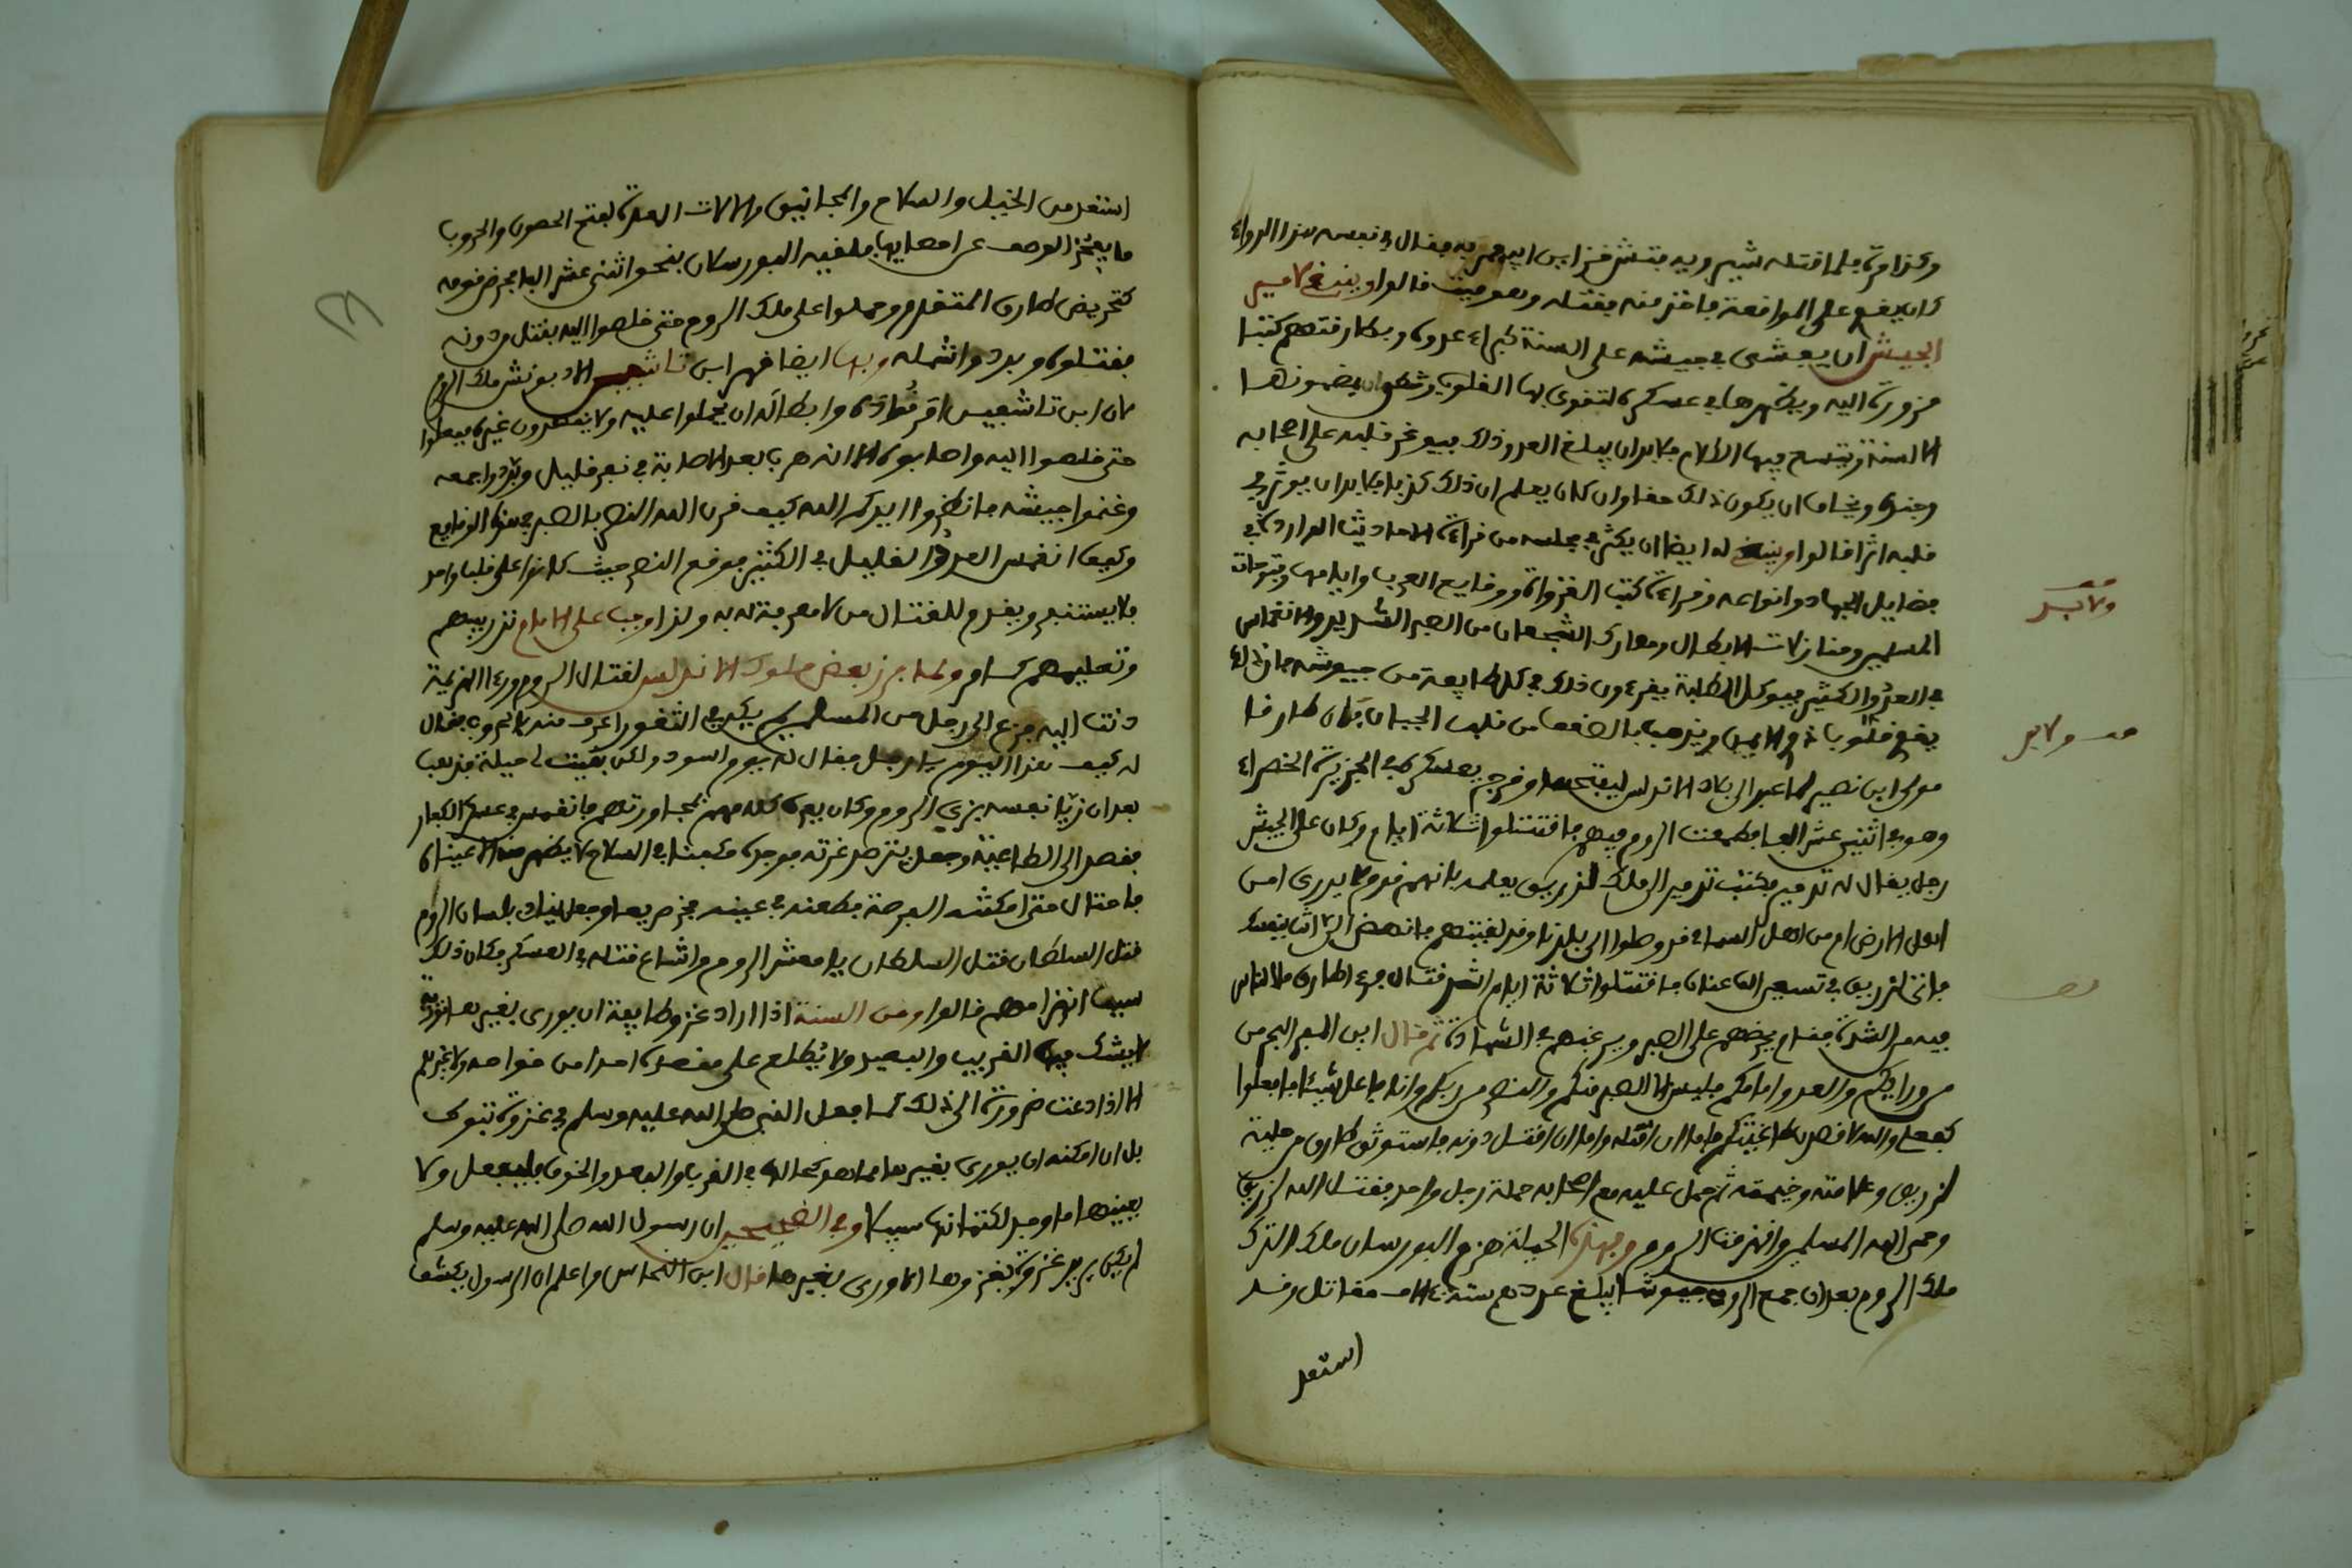 وكذا مرة فلما قتله شيرويه فتش خزاين ابيه فمر به فقال في نفسه هذا الدواء
كان ينفع على المواقعة فاخذ منه فقتله وهو ميت قالوا وينبغي لامير
الجيش ان يفشى في جيشه على السنة كبراء عدوه وبطارقتهم كتبا
مزورة اليه ويظهرها في عسكره لتقوى بها القلوب مضمونها
الالسنة ويتسع فيها الكلام فلا بد ان يبلغ العدو ذلك فيوغر قلبه على اصحابه
وجنده ويخاف ان يكون ذلك حقا وان كان يعلم ان ذلك كذبا فلا بد ان يوثر في
قلبه اثرا قالوا وينبغي له ايضا ان يكثر في مجلسه من قراءة الاحاديث الواردة في
فضايل الجهاد وانواعه وقراءة كتب الغزوات ووقايع العرب وايامها وفتوحات
المسلمين ومنازلات الابطال ومعارك الشجعان من الصبر الشديد والانغماس
في العدو الكثير فيوكل الطلبة يقرءون ذلك في كل طايفة من جيوشه فان ذلك
يقوي قلوب ذوي الايمان ويذهب بالضعف من قلب الجبان فان طارقا
مولى ابن نصير لما عبر الى بلاد الاندلس ليفتحها وخرج بعسكره في الجزيرة الخضراء
وهو في اثني عشر الفا فطمعت الروم فيهم فاقتتلوا ثلاثة ايام وكان على الجيش
رجل يقال له تدمير فكتب تدمير الى الملك لذريق يعلمه بانهم قدم لا يدرى امن
اهل الارض ام من اهل السماء قد وصلوا الى بلدنا وقد لقيتهم فانهض الى بنفسك
فاتى لذريق في تسعين الف عنان فاقتتلوا ثلاثة ايام اشد قتال فرءا طارق ما الناس
فيه من الشدة فقام يحضهم على الصبر ويرغبهم في الشهادة ثم قال اين المفر البحر من
من ورائكم والعدو امامكم فليس الا الصبر منكم والنصر من ربكم وانا فاعل شيئا فافعلوا
كفعلي والله لاقصدن طاغيتهم فاما ان اقتله واما ان اقتل دونه فاستوثق طارق من حلية
لذريق وعلامته وخيمته ثم حمل عليه مع اصحابه حملة رجل واحد فقتل الله لذريق
وحمى الله المسلمين وانهزمت الروم وبهذه الحيلة هزم البورسلان ملك الترك
ملك الروم بعد ان جمع الروم جيوشا يبلغ عددهم ستمائة الف مقاتل وقد
استعد
استعد من الخيل والسلاح والمجانيق والالات المعدة لفتح الحصون والحروب
ما يعجز الوصف عن فلقيه البورسلان بنحو اثني عشر الفا فحرض قومه
كتحريض طارق المتقدم وحملوا على ملك الروم حتى خلصوا اليه بقتل من دونه
فقتلوه وبددوا شمله وبها ايضا قهر ابن تاشفين الادبونش ملك الروم
فان ابن تاشفين امر قواده وابطاله ان يحملوا عليه ولا يقصدون غيره ففعلوا
حتى خلصوا اليه واصابوه الا انه هرب بعد الاصابة في نفر قليل وبددوا جمعه
وغنموا جيشه فانظروا يرحمك الله كيف قرن الله النصر بالصبر في هذه الوقايع
وكيف انغمس العدد القليل في الكثير فوقع النصر حيث كانوا على قلب واحد
فلا يستنفر ويقدم للقتال من لا معرفة له به ولذا وجب على الامام تدريبهم
وتعليمهم كما مر ولما برز بعض ملوك الاندلس لقتال الروم ورءا الهزيمة
دنت اليه فزع الى رجل من المسلمين لم يكن في الثغور اعرف منه بالحروب فقال
له كيف هذا اليوم يا رجل فقال له يوم اسود ولكن بقيت لي حيلة فذهب
بعد ان زيا نفسه بزي الروم وكان يعرف كلامهم لمجاورتهم فانغمس في عسكر الكفار
فقصد الى الطاغية وجعل يترصد غرته فوجده مكفنا في السلاح لا يظهر منه الا عيناه
فاحتال حتى امكنته الفرصة فطعنه في عينه فخر صريعا وجعل ينادي بلسان الروم
قتل السلطان قتل السلطان يا معشر الروم واشاع قتله في العسكر فكان ذلك
سبب انهزامهم قالوا ومن السنة اذا اراد غزو طايفة ان يورى بغيرها
لايشك فيها القريب والبعيد ولا يطلع على مقصده احدا من خواصه ولا غيرهم
الا اذا دعت ضرورة الى ذلك كما فعل النبي صلى الله عليه وسلم في غزوة تبوك
بل ان امكنه ان يورى بغيرها مما هو كحالها في القرب والبعد والخوف فليفعل ولا
يعينها ما وجد لكتمانها سبيلا وفي الصحيحين ان رسول الله صلى الله عليه وسلم
لم يكن يريد غزوة يغزوها الا ورى بغيرها قال ابن النحاس واعلم ان الرسول يكشف